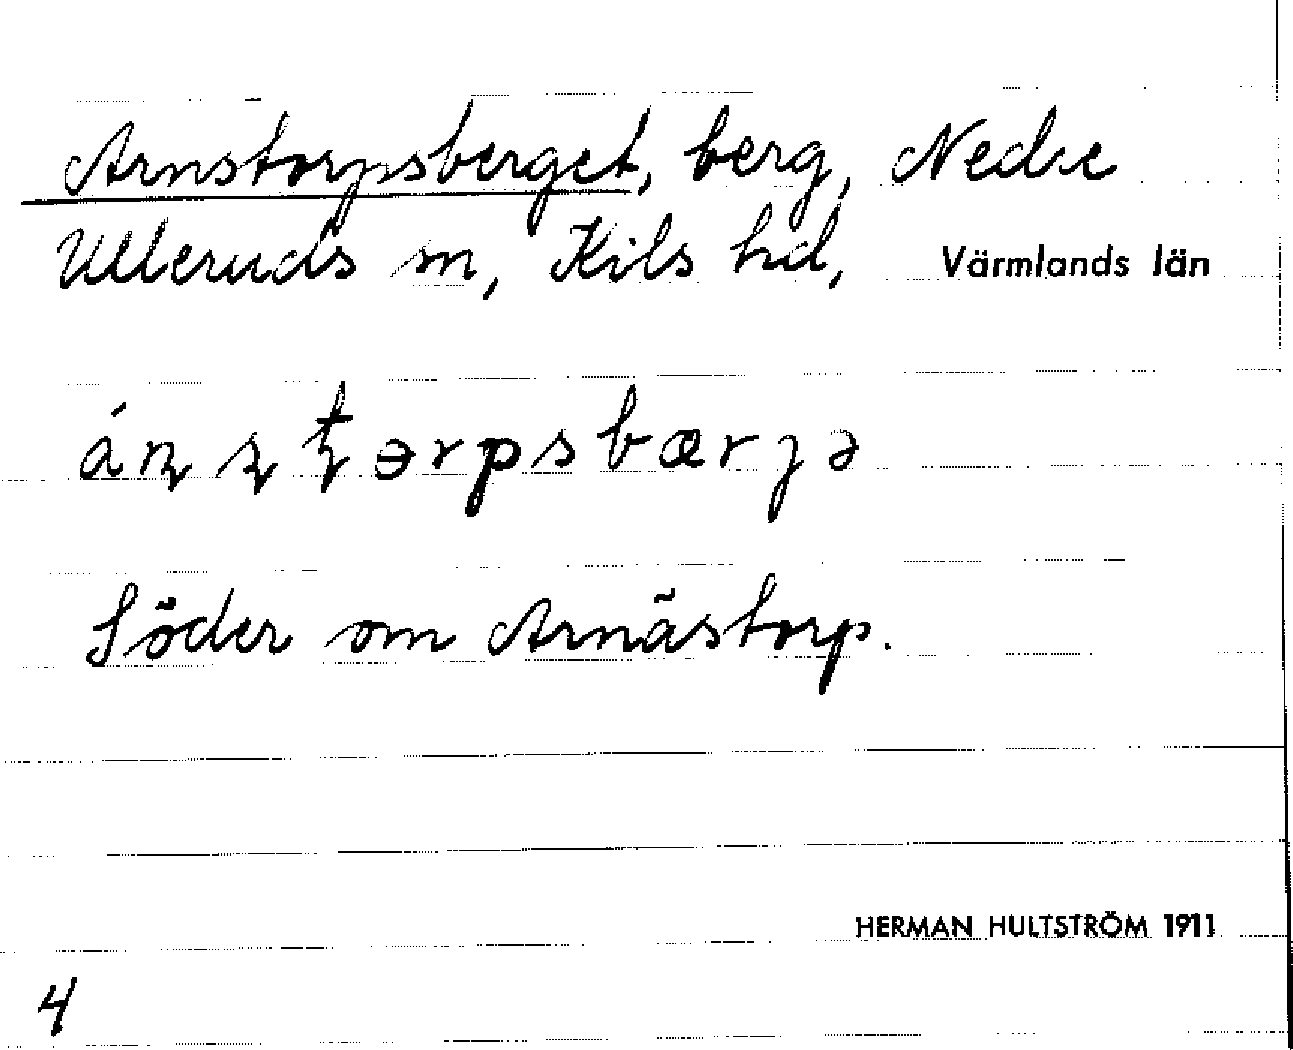 Arnstorpsberget, berg, Nedre
Ulleruds sn, Kils hd, Värmlands län
áɳʂʈərpsbærjə
Söder om Arnästorp.
HERMAN HULTSTRÖM 1911
4